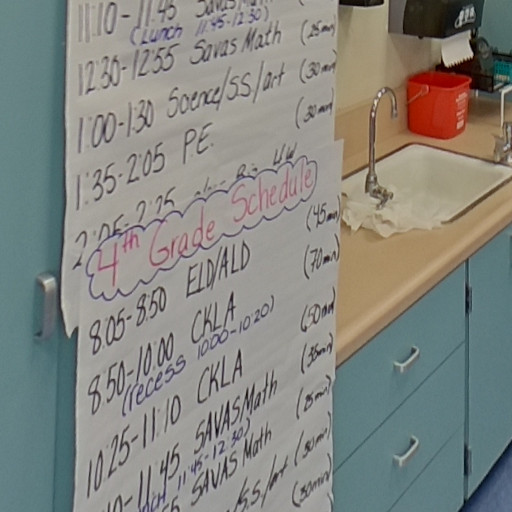 11:10-11:45 Savas Math
(Lunch 11:45-12:30)
12:30-12:55 Savas Math (25min)
1:00-1:30 Science/S.S./art (30min)
1:35-2:05 P.E. (30min)
2:05-2:25
4th Grade Schedule
8:05-8:50 ELD/ALD (45min)
8:50-10:00 CKLA (70min)
(recess 10:00-10:20)
10:25-11:10 CKLA
11:45 SAVAS Math (35min)
11:45-12:30)
SAVAS Math (25min)
/S.S./art (30min)
(30min)